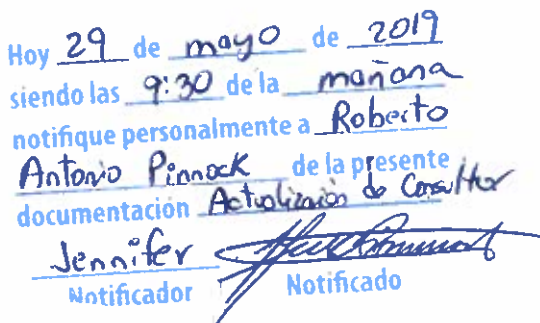 Hoy 29 de mayo de 2019
siendo las 9:30 de la mañana
notifique personalmente a Roberto
Antonio Pinnock de la presente
documentación Actualización de Consultor
Jennifer
Notificador Notificado